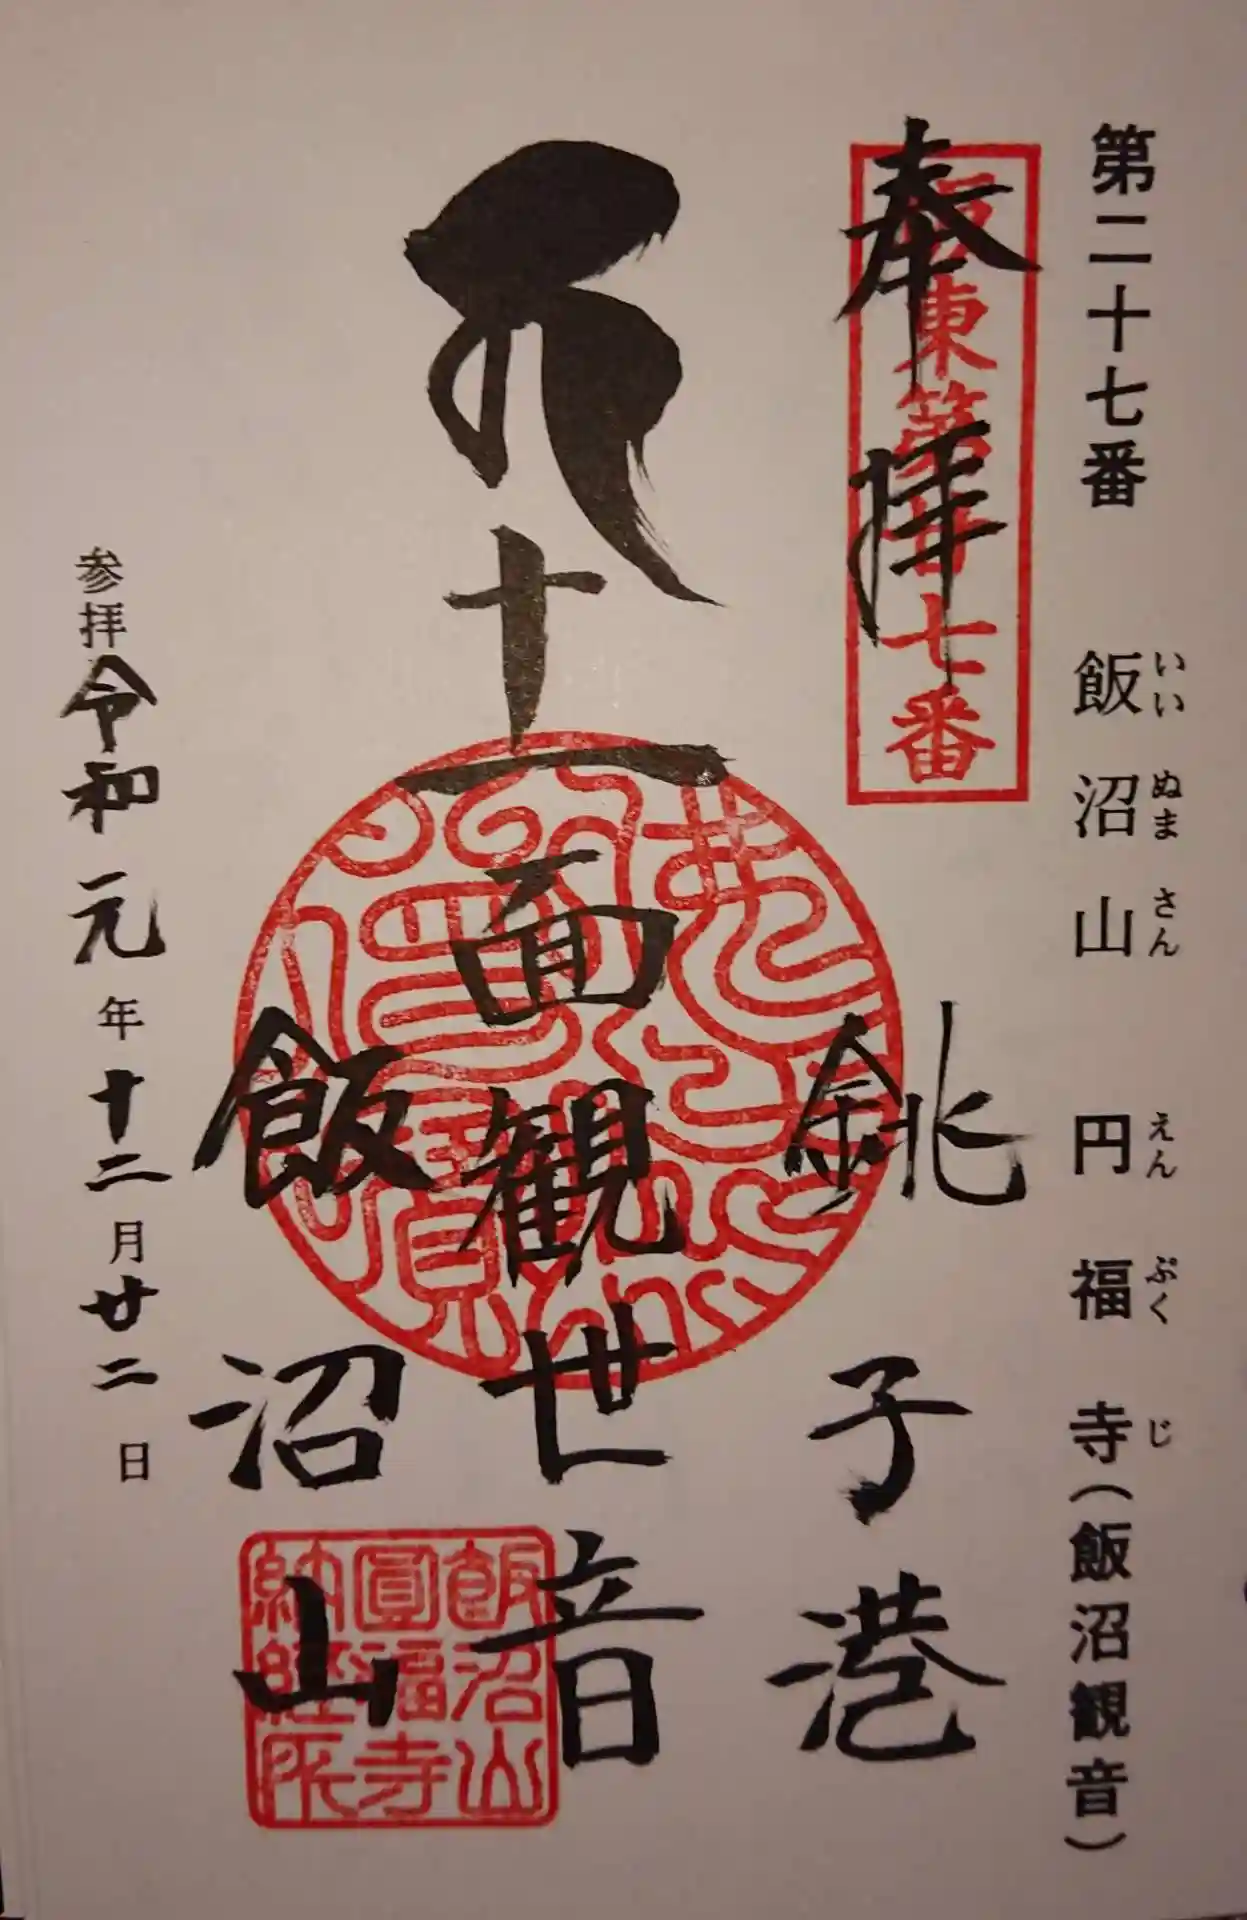 第二十七番 飯沼山 円福寺(飯沼観音)
いい ぬま さん えん ぷく じ
奉拝
坂東第廿七番
銚子港
十一面観世音
飯沼山
飯沼山
圓福寺
納経所
参拝令和元年十二月廿二日